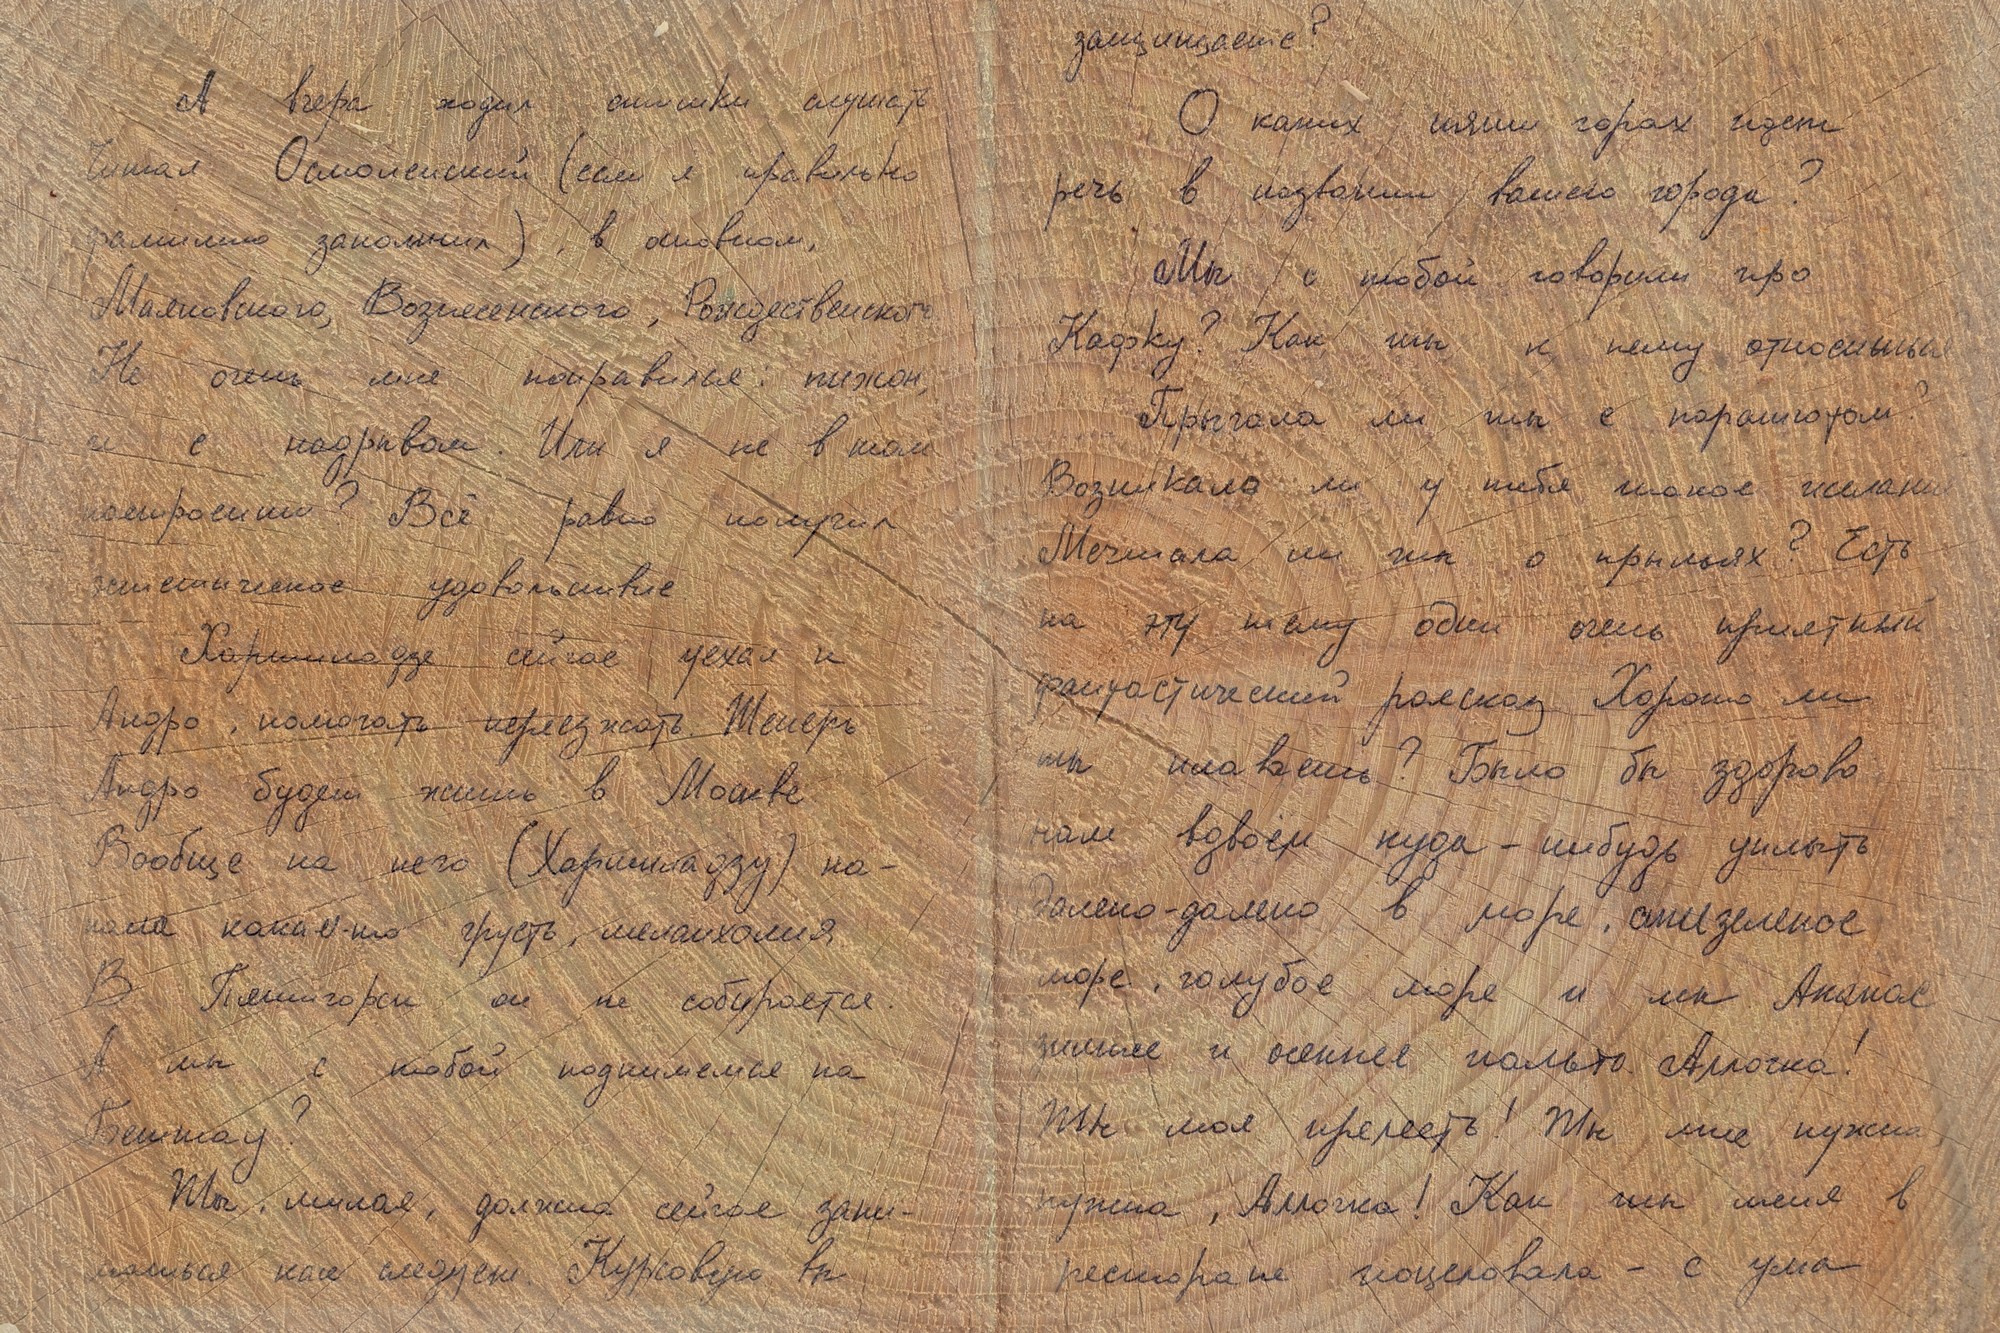 А вчера ходил стишки слушать
Читал Осмоленский (если я правильно
фамилию запомнил), в основном,
Маяковского, Вознесенского, Рождественского.
Не очень мне понравился: пижон,
и с надрывом. Или я не в том
настроении? Всё равно получил
эстетическое удовольствие
Харшиладзе сейчас уехал к
Андро, помогать переезжать. Теперь
Андро будет жить в Москве
Вообще на него (Харшиладзу) на-
пала какая-то грусть, меланхолия
В Пятигорск он не собирается.
А мы с тобой поднимемся на
Бештау?
Ты, милая, должна сейчас зани-
маться как следует. Курсовую вы
защищаете?
О каких пяти горах идет
речь в названии вашего города?
Мы с тобой говорили про
Кафку? Как ты к нему относишься
Прыгала ли ты с парашютом?
Возникало ли у тебя такое желание
Мечтала ли ты о крыльях? Есть
на эту тему один очень приятный
фантастический рассказ Хорошо ли
ты плаваешь? Было бы здорово
нам вдвоём куда-нибудь уплыть
далеко-далеко в море, синезеленое
море, голубое море и мы
зимнее и осеннее пальто. Аллочка!
Ты моя прелесть! Ты мне нужна
нужна, Аллочка! Как ты меня в
ресторане поцеловала - с ума